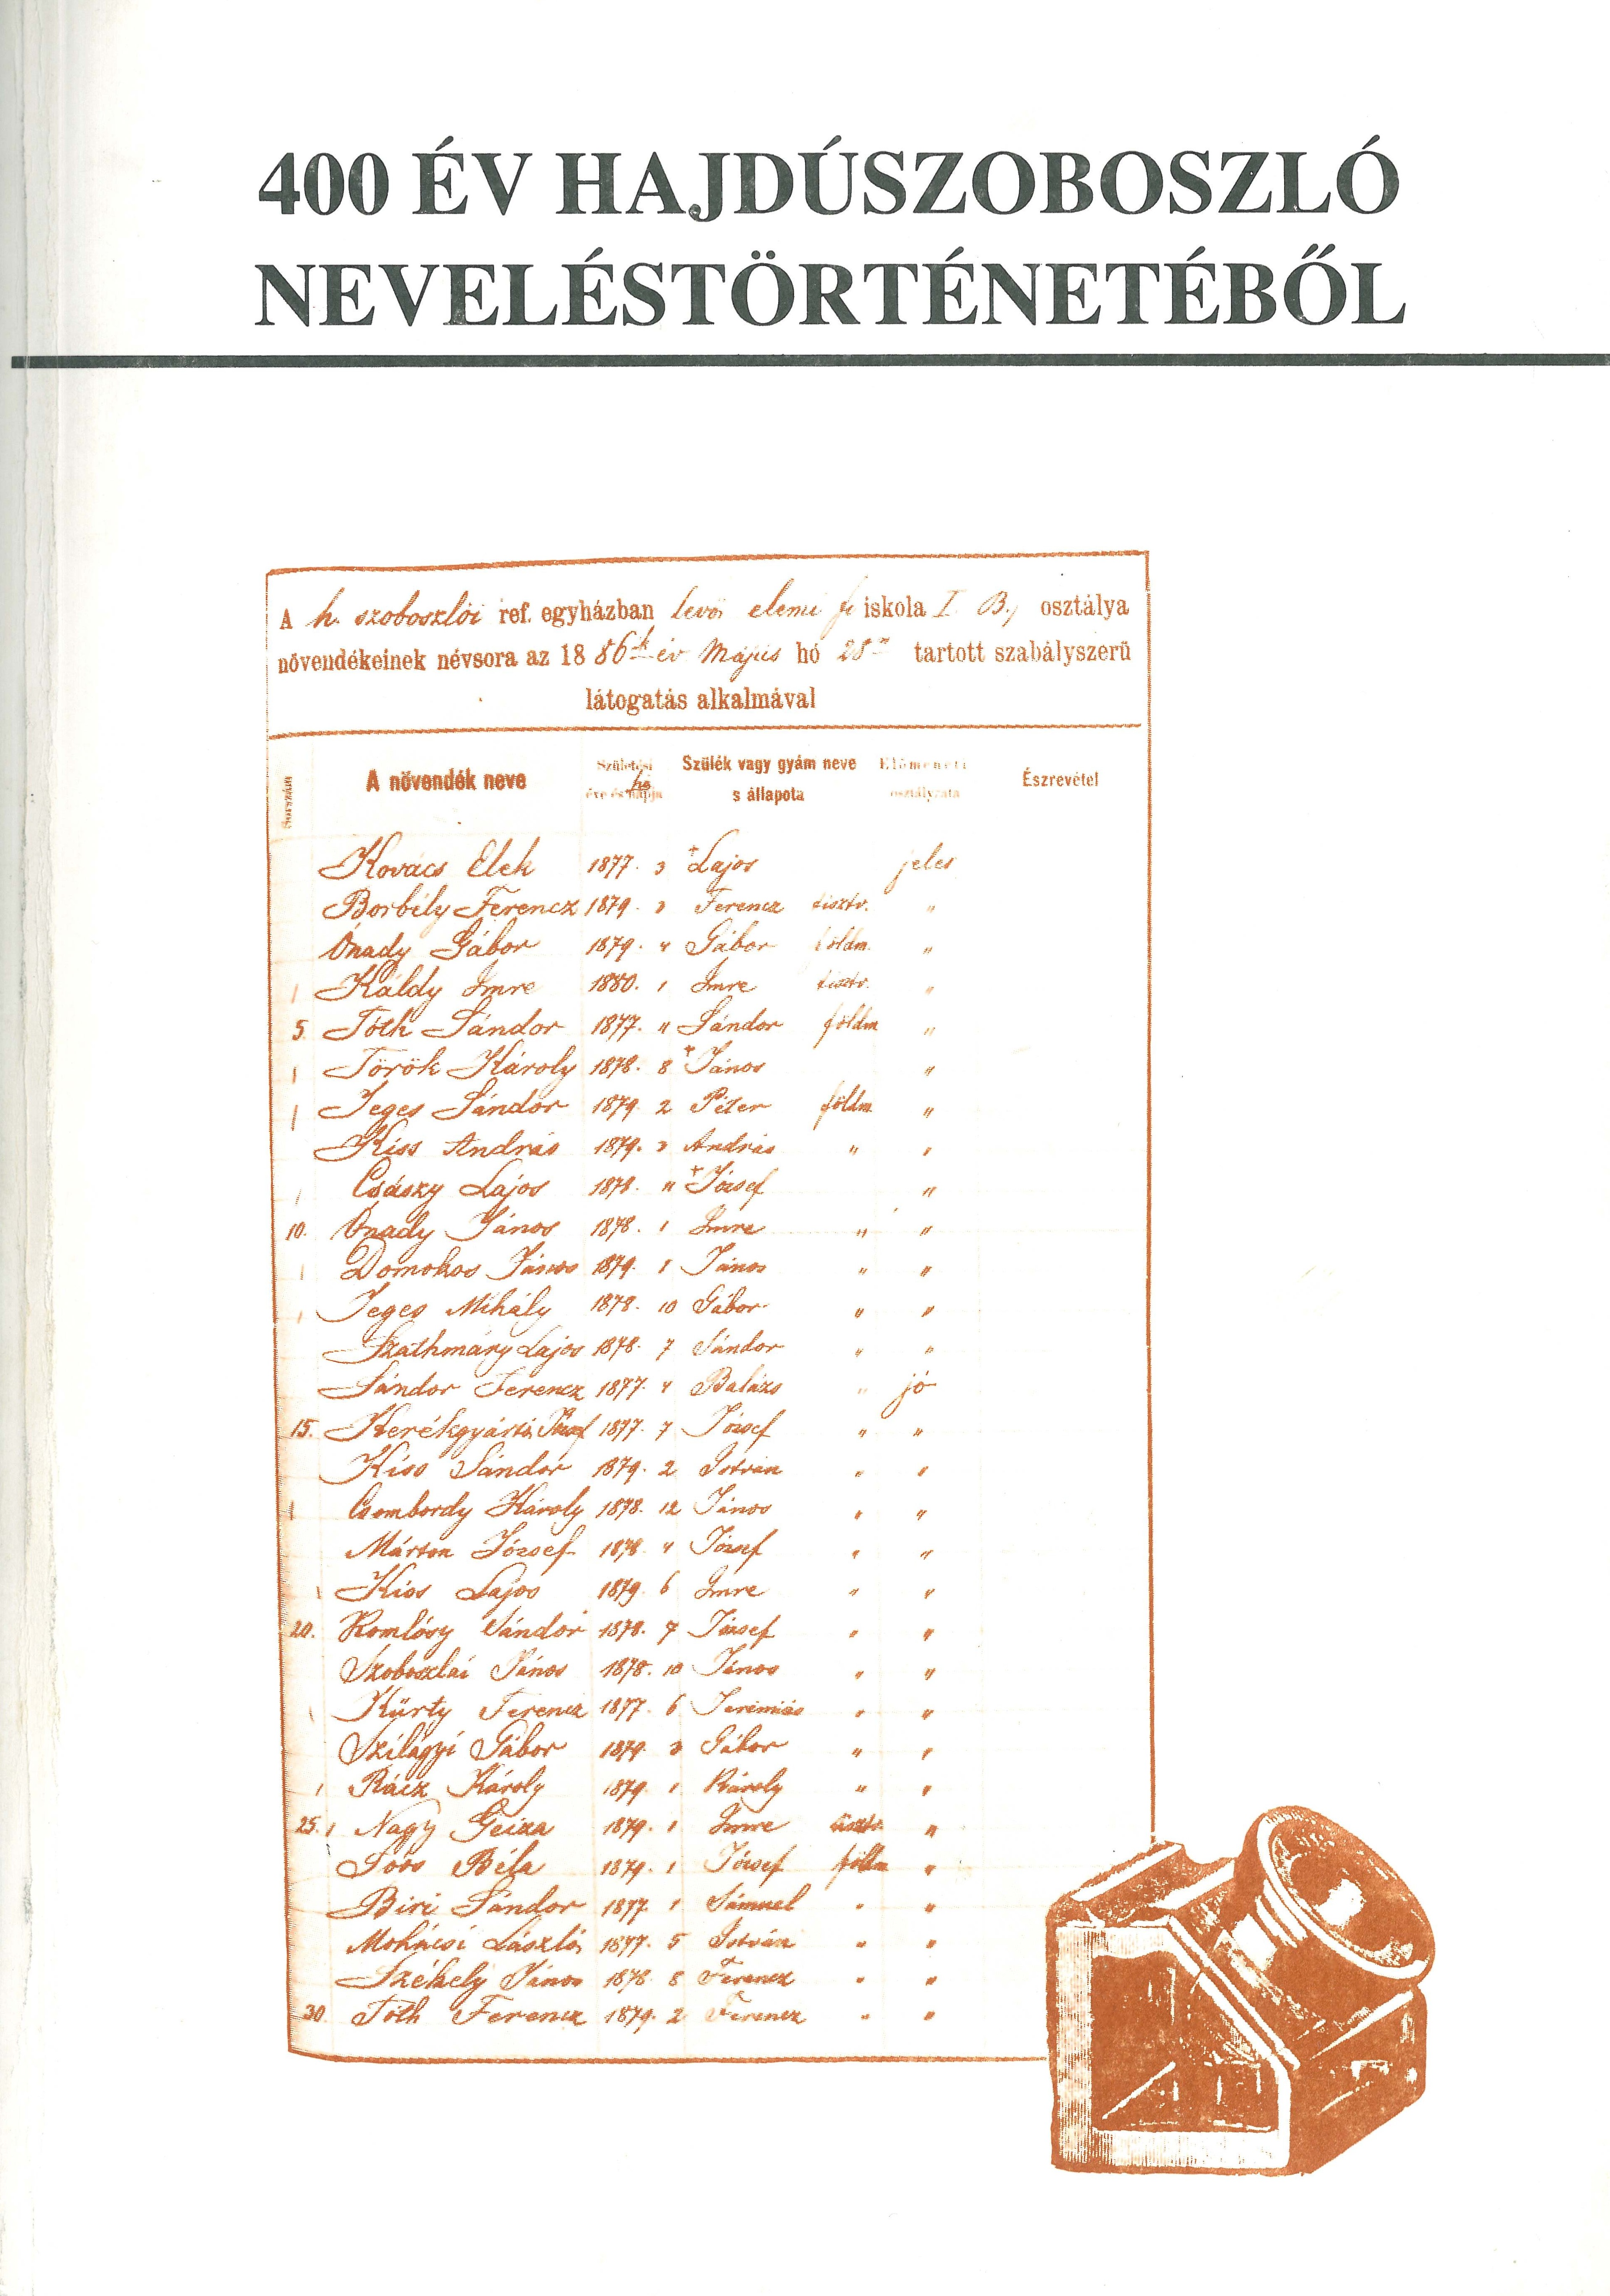 400 ÉV HAJDÚSZOBOSZLÓ
NEVELÉSTÖRTÉNETÉBŐL
A h. szoboszlói ref. egyházban levő elemi fi iskola I. B., osztálya
növendékeinek névsora az 1886ik év Május hó 28án tartott szabályszerü
látogatás alkalmával
Sorszám A növendék neve Születési éve és hó napja Szülék vagy gyám neve s állapota Előmeneti osztályzata Észrevétel
Kovács Elek 1877. 3 + Lajos jeles
Borbély Ferencz 1879. 3 Ferencz tisztv. "
Ónady Gábor 1879. 4 Gábor földm. "
Káldy Imre 1880. 1 Imre tisztv. "
5. Tóth Sándor 1877. 11 Sándor földm "
Török Károly 1878. 8 + János "
Jeges Sándor 1879. 2 Péter földm. "
Kiss András 1879. 3 András " "
Császy Lajos 1878. 11 + József "
10. Ónady János 1878. 1 Imre " "
Domokos János 1879. 1 János " "
Jeges Mihály 1878. 10 Gábor " "
Szathmáry Lajos 1878. 7 Sándor " "
Sándor Ferencz 1877. 4 Balázs " jó
15. Kerékgyártó József 1877. 7 József " "
Kiss Sándor 1879. 2 István " "
Csombordy Károly 1878. 12 János " "
Márton József 1878. 4 József " "
Kiss Lajos 1879. 6 Imre " "
20. Komlósy Sándor 1878. 7 József " "
Szoboszlai János 1878. 10 János " "
Kürty Ferencz 1877. 6 Jeremiás " "
Szilágyi Gábor 1879. 3 Gábor " "
Rácz Károly 1879. 1 Károly " "
25. Nagy Geiza 1879. 1 Imre tisztv. "
Soós Béla 1879. 1 József földm "
Biri Sándor 1877. 1 Sámuel " "
Mohácsi László 1877. 5 István " "
Székely János 1878. 8 Ferencz " "
30. Tóth Ferencz 1879. 2 Ferencz " "